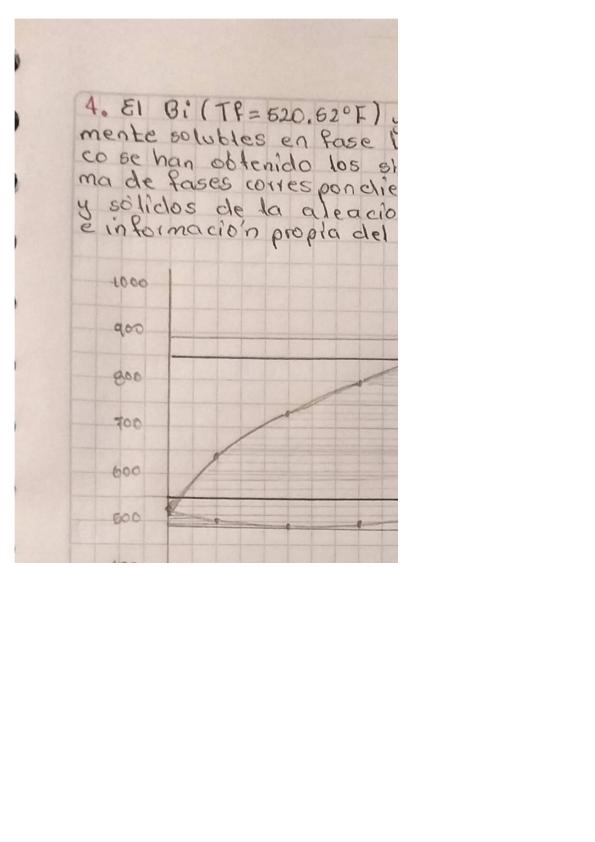 4. El Bi (Tf = 520.52°F)
mente solubles en fase
co se han obtenido los
ma de fases correspondie
y sólidos de la aleació
e información propia del
1000
900
800
700
600
500